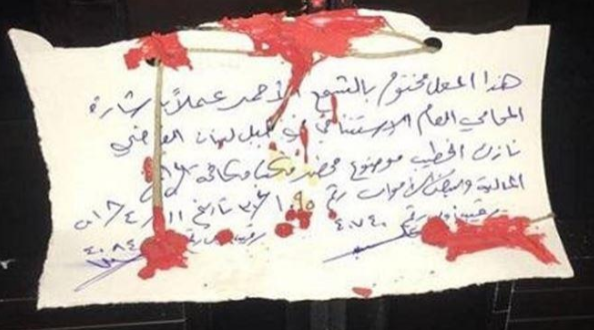 هذا المحل مختوم بالشمع الأحمر عملاً بإشارة
المحامي العام الاستئنافي في جبل لبنان القاضي
نازك الخطيب موضوع محضر مكتب مكافحة الجرائم
المالية وتبييض الأموال رقم تاريخ
رقيب رقم ٤٠٧٤٠ رقم